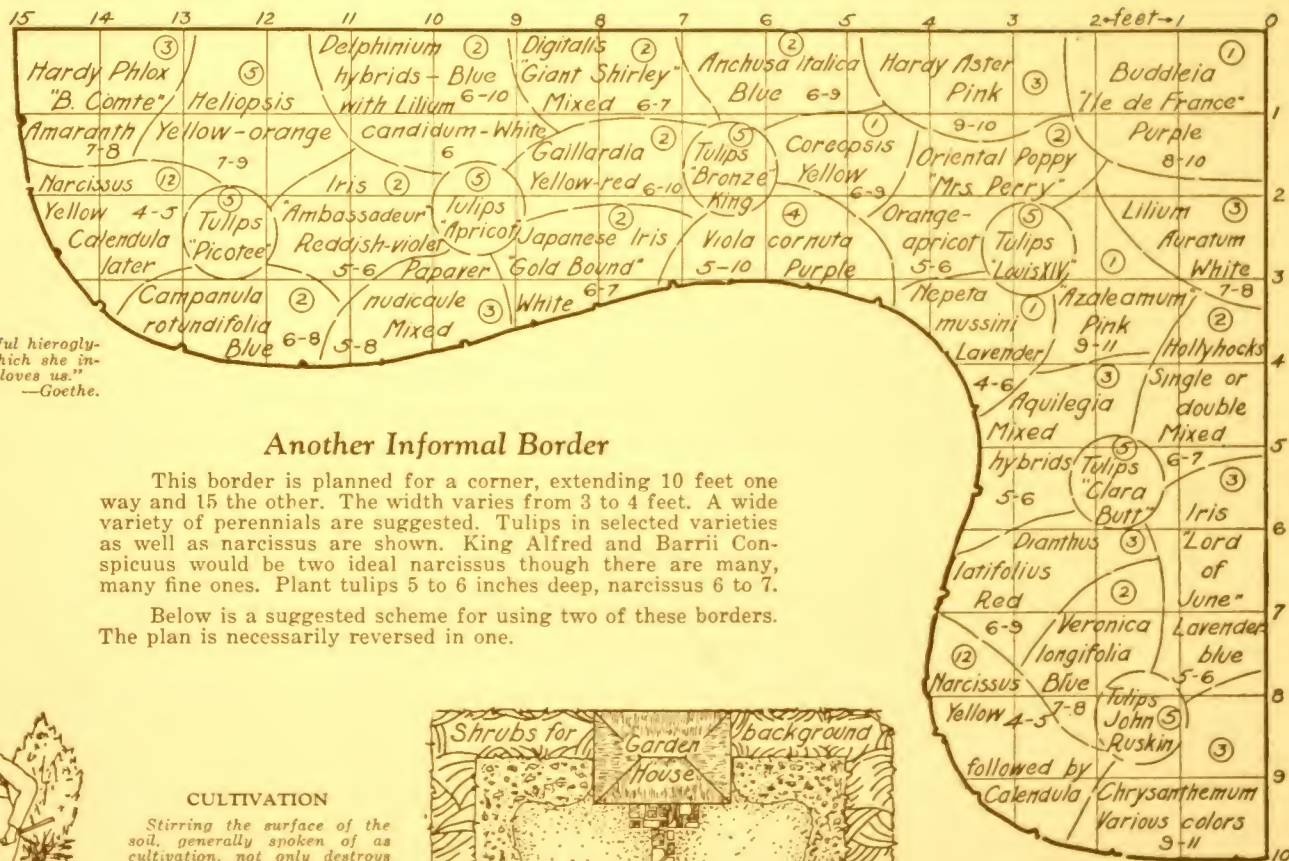 15 14 13 12 11 10 9 8 7 6 5 4 3 2 ←feet→ 1 0
Hardy Phlox ③
"B. Comte"
Amaranth
7-8
⑤
Heliopsis
Yellow-orange
7-9
Delphinium ②
hybrids - Blue
with Lilium 6-10
candidum-White
6
Digitalis ②
"Giant Shirley"
Mixed 6-7
②
Anchusa italica
Blue 6-9
Hardy Aster
Pink ③
9-10
①
Buddleia
"Ile de France"
Purple
8-10
Narcissus ⑫
Yellow 4-5
Calendula
later
⑤
Tulips
"Picotee"
Iris ②
"Ambassadeur"
Reddish-violet
5-6
⑤
Tulips
"Apricot"
Gaillardia ②
Yellow-red 6-10
⑤
Tulips
"Bronze
King
①
Coreopsis
Yellow
6-9
②
Oriental Poppy
"Mrs. Perry"
Orange-
apricot
5-6
⑤
Tulips
"Louis XIV"
Lilium ③
Auratum
White
7-8
Campanula ②
rotundifolia
Blue 6-8
Papaver
nudicaule
Mixed ③
5-8
②
Japanese Iris
"Gold Bound"
White 6-7
④
Viola cornuta
5-10 Purple
Nepeta
mussini ①
Lavender
4-6
①
"Azaleamum"
Pink
9-11
②
Hollyhocks
Single or
double
Mixed
6-7
③
Aquilegia
Mixed
hybrids
5-6
⑤
Tulips
"Clara
Butt"
③
Iris
"Lord
of
June"
Lavender
blue
5-6
Dianthus ③
latifolius
Red
6-9
②
Veronica
longifolia
Blue
7-8
⑫
Narcissus
Yellow 4-5
followed by
Calendula
Tulips
John ⑤
Ruskin
③
Chrysanthemum
Various colors
9-11
1
2
3
4
5
6
7
8
9
10
ful hierogly-
hich she in-
loves us."
—Goethe.
Another Informal Border
This border is planned for a corner, extending 10 feet one
way and 15 the other. The width varies from 3 to 4 feet. A wide
variety of perennials are suggested. Tulips in selected varieties
as well as narcissus are shown. King Alfred and Barrii Con-
spicuus would be two ideal narcissus though there are many,
many fine ones. Plant tulips 5 to 6 inches deep, narcissus 6 to 7.
Below is a suggested scheme for using two of these borders.
The plan is necessarily reversed in one.
CULTIVATION
Stirring the surface of the
soil, generally spoken of as
cultivation, not only destroys
Shrubs for
Garden
House
background